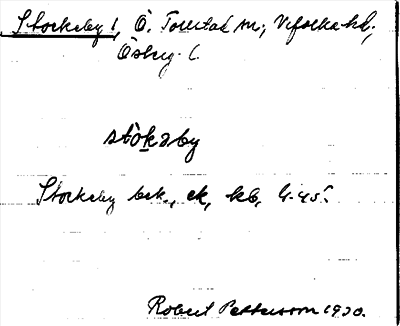 Stockeby 1, Ö. Tollstad sn; Vifolka hd;
Österg. l.
stòkəby
Stockeby bek., ek, kb, G-45.
Robert Pettersson 1930.